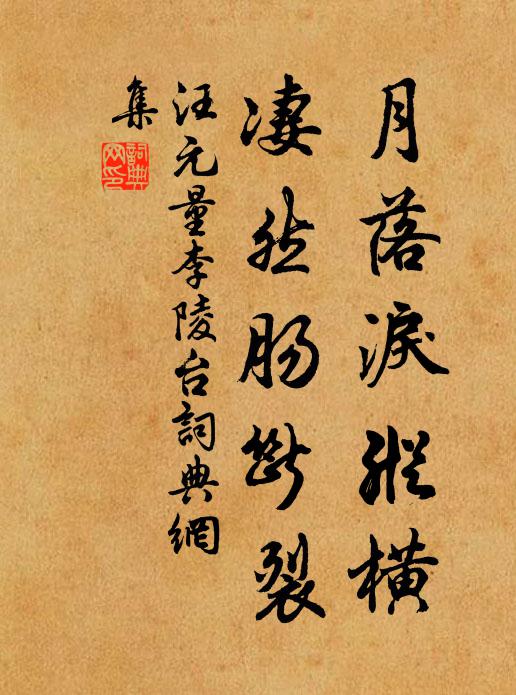 月落淚縱橫
凄然腸斷裂
汪元量李陵台詞典網
集
詞典
网印